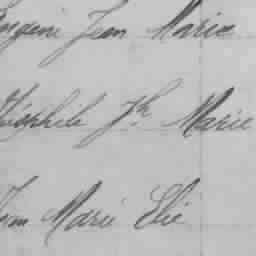 Eugène Jean Marie
Théophile Jh Marie
Jean Marie Elie